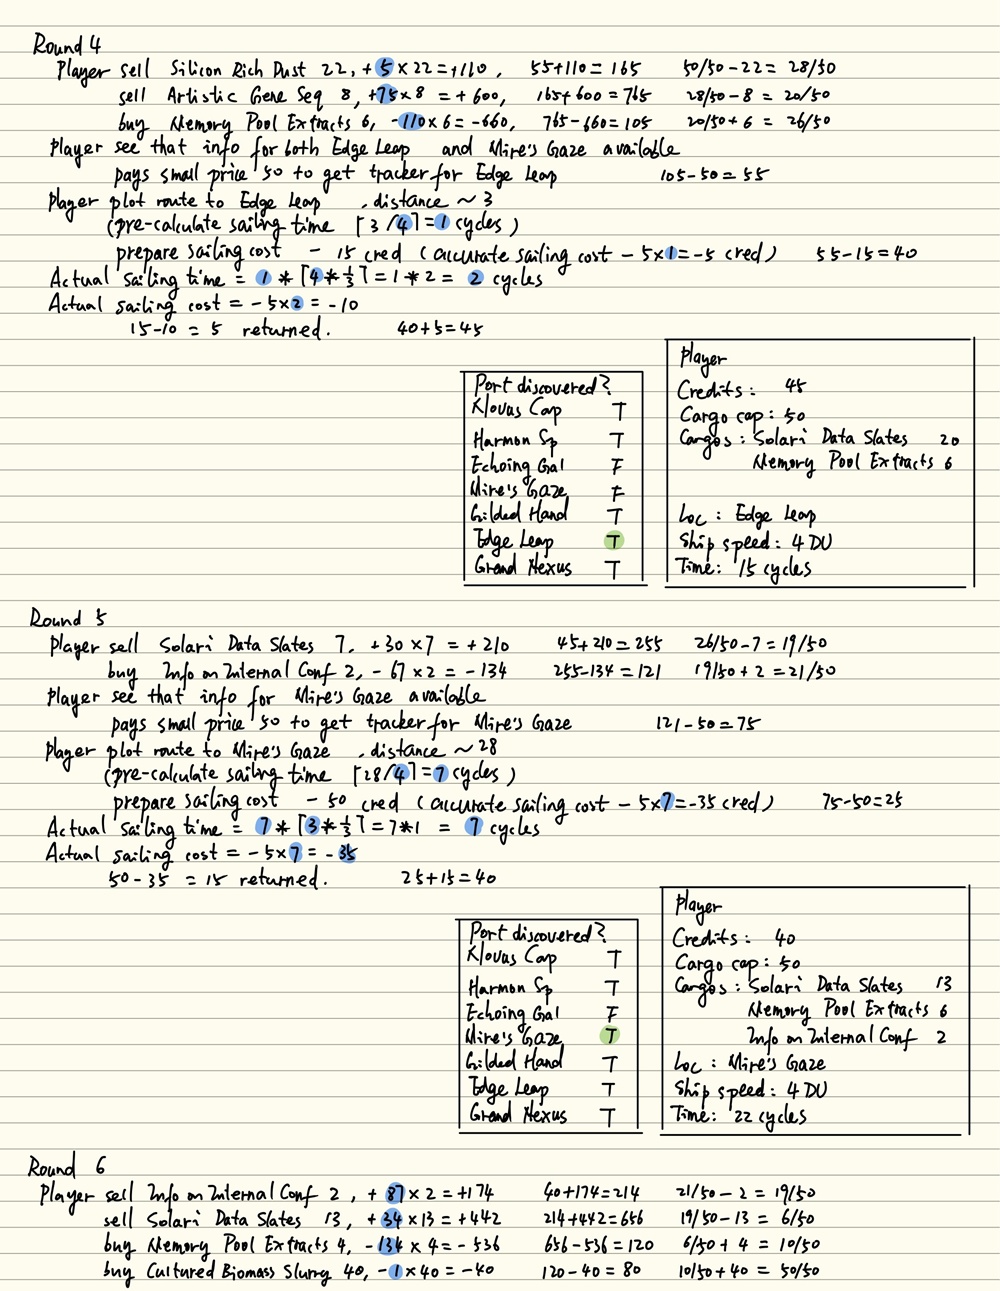 Round 4
Player sell Silicon Rich Dust 22, +5×22=+110, 55+110=165 50/50-22=28/50
sell Artistic Gene Seq 8, +75×8=+600, 165+600=765 28/50-8=20/50
buy Memory Pool Extracts 6, -110×6=-660, 765-660=105 20/50+6=26/50
Player see that info for both Edge Leap and Mire's Gaze available
pays small price 50 to get tracker for Edge Leap 105-50=55
Player plot route to Edge Leap, distance ~3
(pre-calculate sailing time ⌈3/4⌉=1 cycles)
prepare sailing cost - 15 cred (accurate sailing cost - 5×1=-5 cred) 55-15=40
Actual sailing time = 1*⌈4*⅓⌉=1*2= 2 cycles
Actual sailing cost = -5×2=-10
15-10=5 returned. 40+5=45
Port discovered?
Klovus Cap T
Harmon Sp T
Echoing Gal F
Mire's Gaze F
Gilded Hand T
Edge Leap T
Grand Nexus T
Player
Credits: 45
Cargo cap: 50
Cargos: Solari Data Slates 20
Memory Pool Extracts 6
Loc: Edge Leap
Ship speed: 4 DU
Time: 15 cycles
Round 5
Player sell Solari Data Slates 7, +30×7=+210 45+210=255 26/50-7=19/50
buy Info on Internal Conf 2, -67×2=-134 255-134=121 19/50+2=21/50
Player see that info for Mire's Gaze available
pays small price 50 to get tracker for Mire's Gaze 121-50=75
Player plot route to Mire's Gaze, distance ~28
(pre-calculate sailing time ⌈28/4⌉=7 cycles)
prepare sailing cost - 50 cred (accurate sailing cost - 5×7=-35 cred) 75-50=25
Actual sailing time = 7*⌈3*⅓⌉=7*1 = 7 cycles
Actual sailing cost = -5×7=-35
50-35=15 returned. 25+15=40
Port discovered?
Klovus Cap T
Harmon Sp T
Echoing Gal F
Mire's Gaze T
Gilded Hand T
Edge Leap T
Grand Nexus T
Player
Credits: 40
Cargo cap: 50
Cargos: Solari Data Slates 13
Memory Pool Extracts 6
Info on Internal Conf 2
Loc: Mire's Gaze
Ship speed: 4 DU
Time: 22 cycles
Round 6
Player sell Info on Internal Conf 2, +87×2=+174 40+174=214 21/50-2=19/50
sell Solari Data Slates 13, +34×13=+442 214+442=656 19/50-13=6/50
buy Memory Pool Extracts 4, -134×4=-536 656-536=120 6/50+4=10/50
buy Cultured Biomass Slurry 40, -1×40=-40 120-40=80 10/50+40=50/50